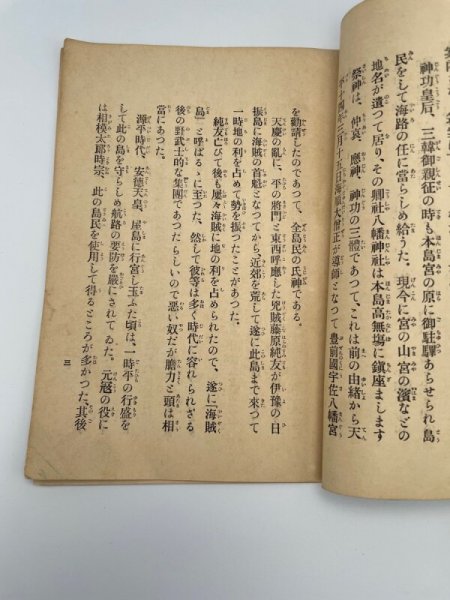 神功皇后、三韓御親征の時も本島宮の原に御駐驛あらせられ島
民をして海路の任に當らしめ給うた。現今に宮の山宮の濱などの
地名が遺つて居り、その郷社八幡神社は本島高無塲に鎭座まします
祭神は、仲哀、應神、神功の三體であつて、これは前の由緒から天
平十四年三月十五日
大僧正が導師となつて豊前國宇佐八幡宮
を勸請したのであつて、全島民の氏神である。
天慶の亂に、平の將門と東西呼應した兇賊藤原純友が伊豫の日
振島に海賊の首魁となつてから、近郊を荒して遂に此島まで來つて
一時地の利を占めて勢を振つたことがあつた。
純友亡びて後も屢々海賊に地の利を占められたので、遂に海賊
島〟と呼ばるゝに至つた。然して彼等は多く時代に容れられざる
後の野武士的な集團であつたらしいので惡い奴だが膽力と頭は相
當にあつた。
源平時代、安德天皇、屋島に行宮し玉ふた頃は、一時平の行盛を
して此の島を守らしめ航路の要防を嚴にされてゐた。元冦の役に
は相模太郎時宗、此の島民を使用して得るところが多かつた、其後
三